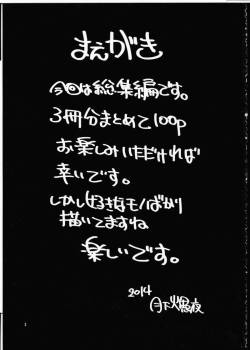 まえがき
今回は総集編です。
3冊分まとめて100p
お楽しみいただければ
幸いです。
しかし好きなモノばかり
描いてますね
楽しいです。
2014
月下火煜夜